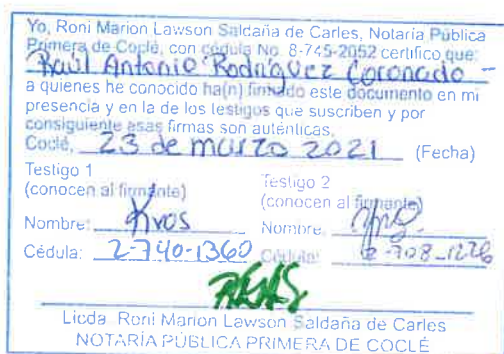 Yo, Roni Marion Lawson Saldaña de Carles, Notaria Pública
Primera de Coclé, con cédula No. 8-745-2052 certifico que:
Raúl Antonio Rodríguez Coronado -
a quienes he conocido ha(n) firmado este documento en mi
presencia y en la de los testigos que suscriben y por
consiguiente esas firmas son auténticas.
Coclé, 23 de marzo 2021 (Fecha)
Testigo 1
(conocen al firmante)
Nombre:
Cédula: 2-740-1360
Testigo 2
(conocen al firmante)
Nombre:
Cédula: 2-708-1226
Licda. Roni Marion Lawson Saldaña de Carles
NOTARÍA PÚBLICA PRIMERA DE COCLÉ